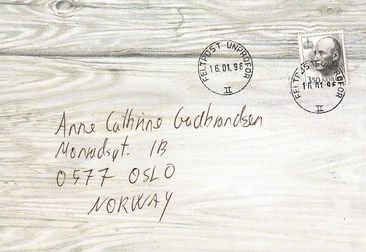 FELTPOST UNPROFOR
16.01.96
II
350 NORGE
FELTPOST UNPROFOR
16.01.96
II
Anne Cathrine Gudbrandsen
Monradsgt. 1B
0577 OSLO
NORWAY